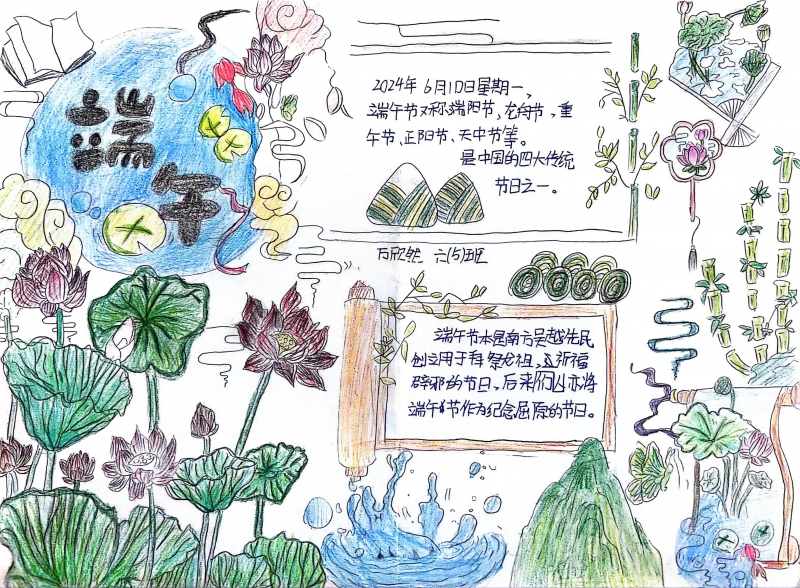 端午
2024年6月10日星期一,
端午节又称端阳节、龙舟节、重
午节、正阳节、天中节等。
是中国的四大传统
节日之一。
万欣然 六(5)班
端午节本是南方吴越先民
创立用于拜祭龙祖,立祈福
辟邪的节日,后来们以亦将
端午节作为纪念屈原的节日。